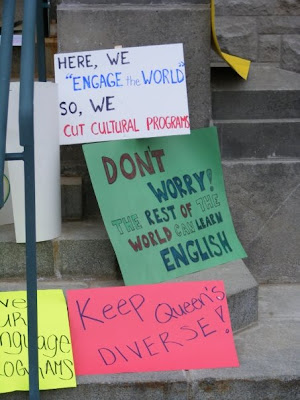 HERE, WE
"ENGAGE the WORLD"
SO, WE
CUT CULTURAL PROGRAMS
DON'T
WORRY!
THE REST OF THE
WORLD CAN LEARN
ENGLISH
KEEP QUEEN'S
DIVERSE!